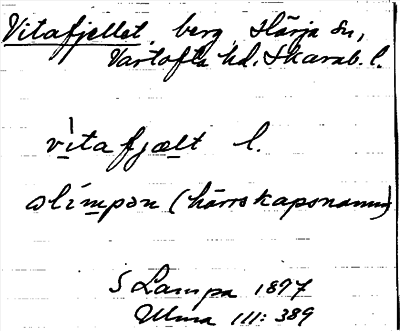 Vitafjellet, berg, Härja sn,
Vartofta hd. Skarab. l.
vitafjælt l.
olímpən (härrskapsnamn)
S Lampa 1897
Ulma III: 389